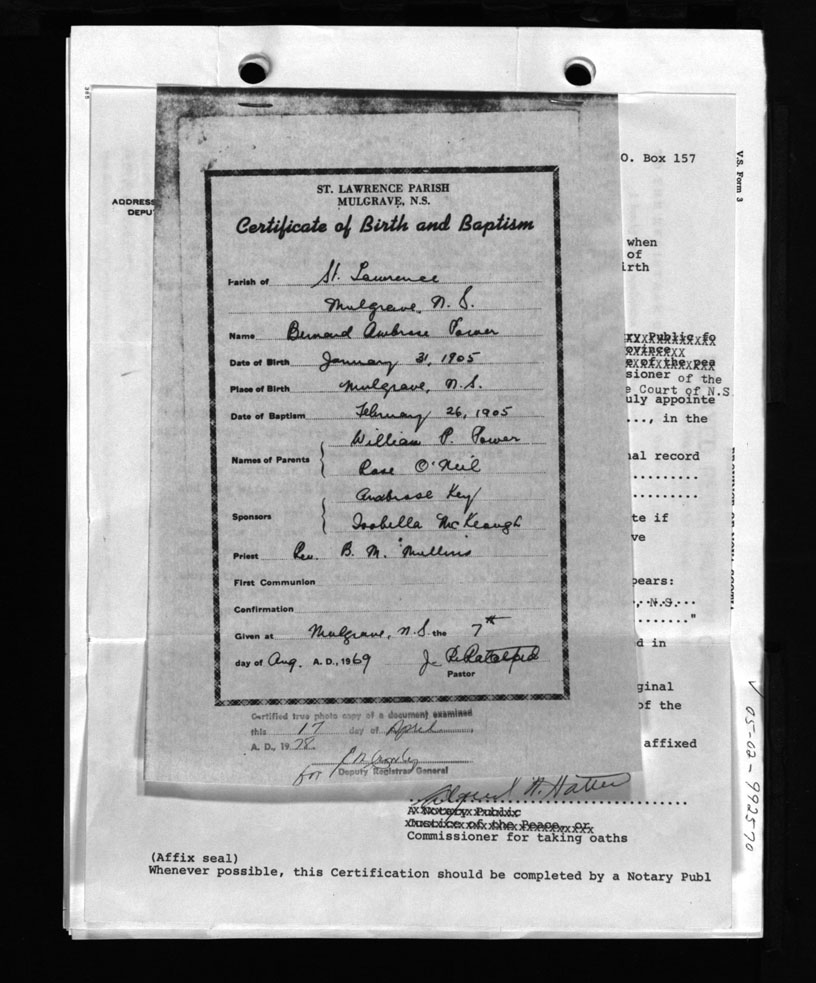 365
O. Box 157
V.S. Form 3
ADDRESS
DEPU
ST. LAWRENCE PARISH
MULGRAVE, N.S.
Certificate of Birth and Baptism
Parish of St. Lawrence
Mulgrave, N.S.
Name Bernard Ambrose Power
Date of Birth January 31, 1905
Place of Birth Mulgrave, N.S.
Date of Baptism February 26, 1905
William P. Power
Names of Parents
Rose O'Neil
Ambrose Key
Sponsors
Isabella McKeough
Priest Rev. B. M. Mullins
First Communion
Confirmation
Given at Mulgrave, N.S. the 7th
day of Aug. A. D., 1969
Pastor
Certified true photo copy of a document examined
this 17 day of April
A. D., 1978.
for
Deputy Registrar General
when
of
irth
ry Public fo
ovince
e of the pea
sioner of the
e Court of N.S
uly appointe
..., in the
al record
te if
ve
pears:
, N.S.
"
d in
ginal
of the
affixed
05-02-992570
A Notary Public
Justice of the Peace or
Commissioner for taking oaths
(Affix seal)
Whenever possible, this Certification should be completed by a Notary Publ